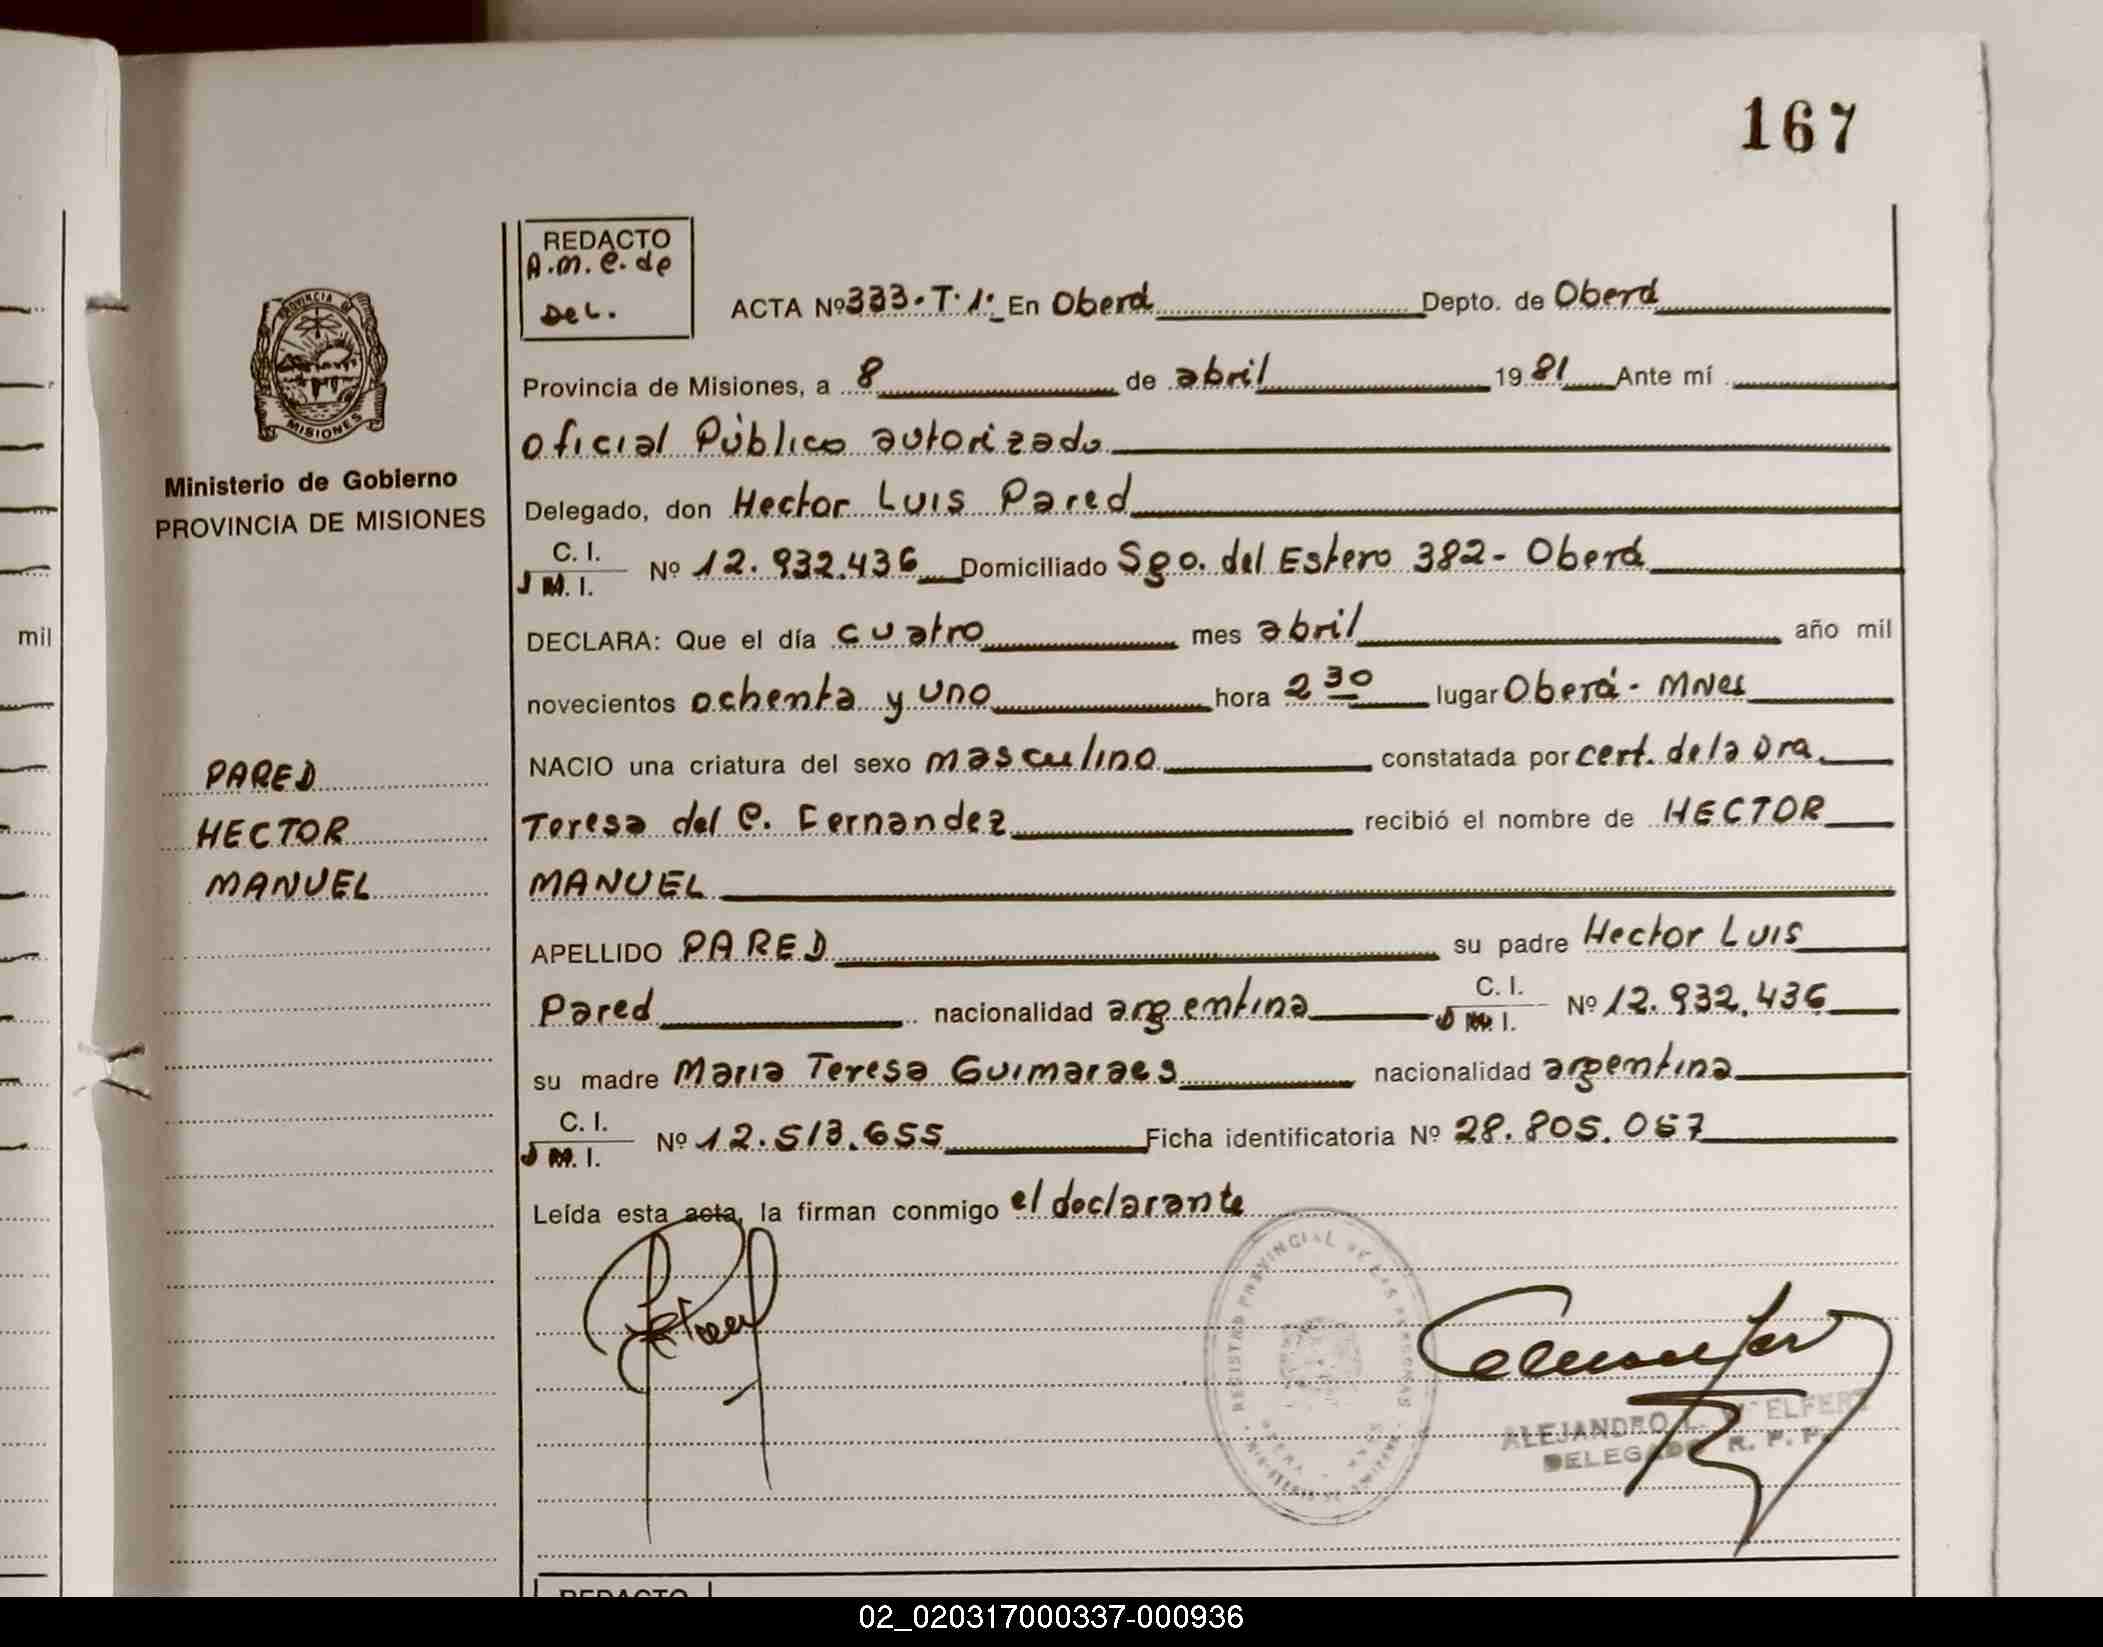 167
REDACTO
A.M.C. de
Del.
ACTA Nº 333. T. 1. En Oberá Depto. de Oberá
Provincia de Misiones, a 8 de abril 1981 Ante mí
Oficial Público autorizado
Delegado, don Hector Luis Pared
C. I.
Nº 12.932.436 Domiciliado Sgo. del Estero 382 - Oberá
M. I.
DECLARA: Que el día cuatro mes abril año mil
novecientos ochenta y uno hora 2 30 lugar Oberá - Mnes
NACIO una criatura del sexo masculino constatada por cert. de la Dra.
Teresa del C. Fernandez recibió el nombre de HECTOR
MANUEL
APELLIDO PARED su padre Hector Luis
Pared nacionalidad argentina C. I. M. I. Nº 12.932.436
su madre Maria Teresa Guimaraes nacionalidad argentina
C. I.
Nº 12.513.655 Ficha identificatoria Nº 28.805.067
M. I.
Leída esta acta, la firman conmigo el declarante
PROVINCIA DE
MISIONES
Ministerio de Gobierno
PROVINCIA DE MISIONES
PARED
HECTOR
MANUEL
mil
REGISTRO PROVINCIAL DE LAS PERSONAS
ALEJANDRO L. ELFERT
DELEGADO R. P. P.
REDACTO
02_020317000337-000936